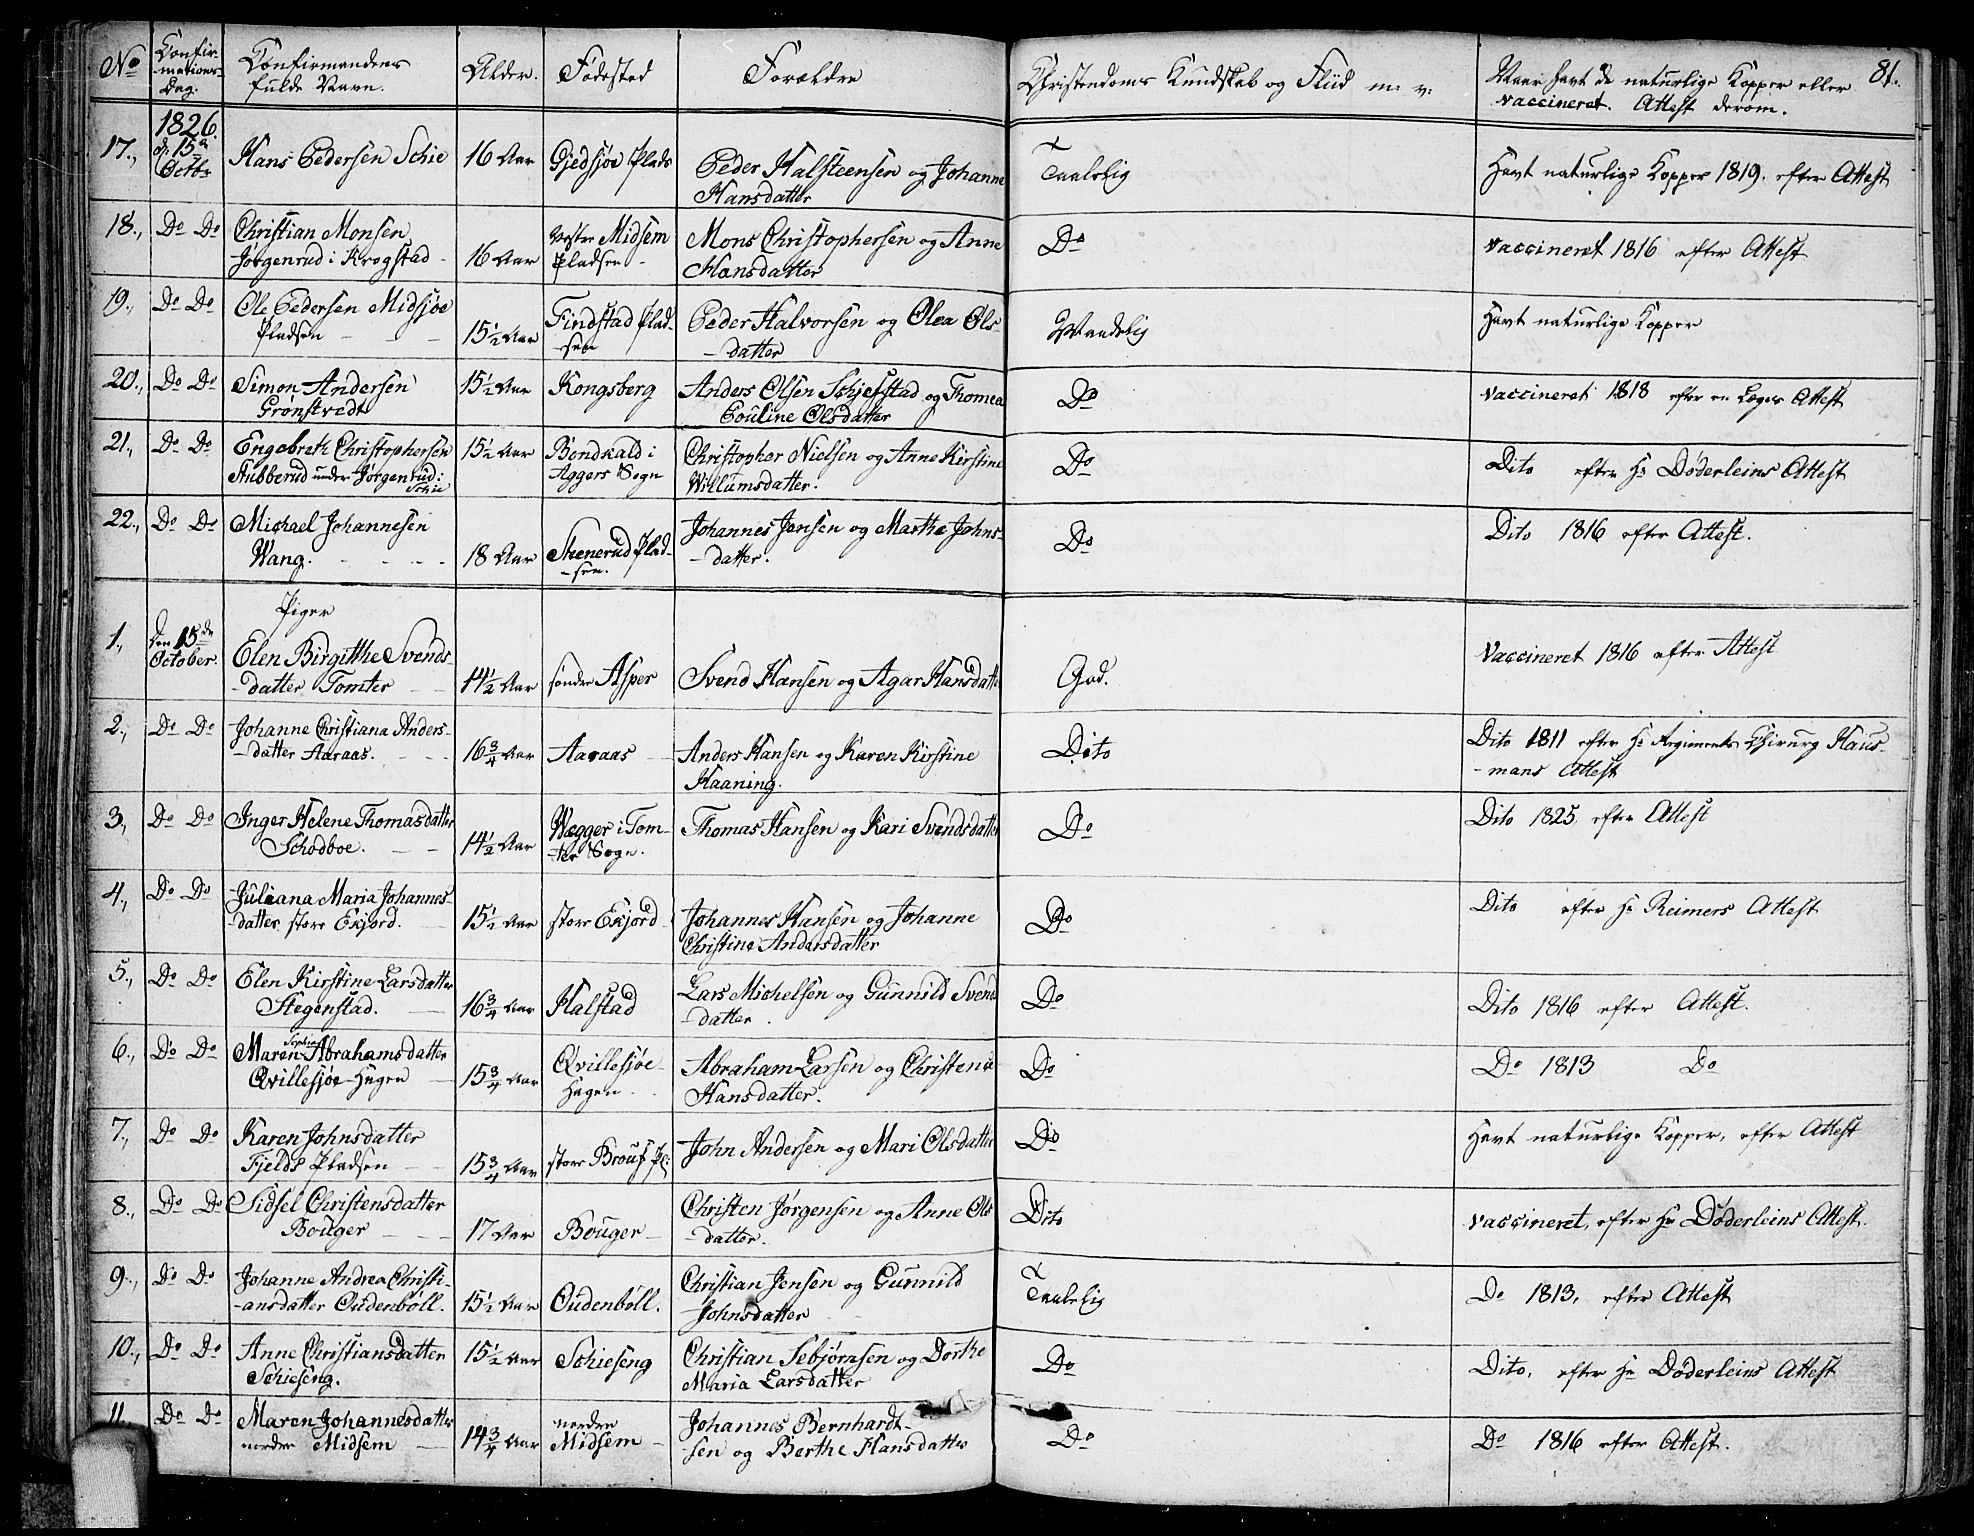 No Confir- Confirmandens Alder. Fødested Forældre Christendoms Kundskab og Fliid m: v: Naar havt de naturlige Kopper eller 81.
-mations- fulde Navn. vaccineret. Attest derom.
Dag.
1826.
17., d: 15de Hans Pedersen Schie 16 Aar Gjedsjøe Plads Peder Halsteensen og Johanne Taalelig Havt naturlige Kopper 1819. efter Attest
Octbr Hansdatter
18., Do Do Christian Monsen Vester Midsem Mons Christophersen og Anne Do vaccineret 1816 efter Attest
Jørgenrud i Krogstad - 16 Aar Pladsen - Hansdatter
19., Do Do Ole Pedersen Midsjøe Findstad Plad- Peder Halvorsen og Olea Ols Maadelig Havt naturlige Kopper
Pladsen - - - 15½ Aar -sen -datter
20., Do Do Simon Andersen 15½ Aar Kongsberg Anders Olsen Schjefstad og Thomea Do vaccineret 1818 efter en Læges Attest
Grønstvedt Pouline Olsdatter
21., Do Do Engebreth Christophersen 15½ Aar Bondkald i Christopher Nielsen og Anne Kirstine Do Dito efter Hr Døderleins Attest
Stubberud under Jørgenrud i Aggers Sogn Willumsdatter.
Schie
22., Do Do Michael Johannesen Johannes Jensen og Marthe Johns- Do Dito 1816 efter Attest.
Wang. - - - - 18 Aar Stenerud Plad- -datter.
-sen.
Piger
1., Den 15de Elen Birgitthe Svends- God. Vaccineret 1816 efter Attest
October. -datter Tomter - - 14½ Aar søndre Asper Svend Hansen og Agar Hansdatter
2., Do Do Johanne Christiana Anders- Dito Dito 1811 efter Hr Regiments Chirurg Haus-
-datter Aaraas. - - - 16¾ Aar Aaraas - Anders Hansen og Karen Kirstine -mans Attest
Haaning.
3., Do Do Inger Helene Thomasdatter Wegger i Tom- Thomas Hansen og Kari Svendsdatter Do Dito 1825. efter Attest
Schodboe. - - 14½ Aar -ter Sogn.
4., Do Do Juliana Maria Johannes- Dito efter Hr Reimers Attest
-datter store Exjord. - 15½ Aar store Exjord - Johannes Hansen og Johanne Do
Christine Andersdatter
5., Do Do Elen Kirstine Larsdatter Lars Michelsen og Gunnild Svend Do Dito 1816 efter Attest.
Stegenstad. - 16¾ Aar Halstad -datter.
6., Do Do Maren Sophie Abrahamsdatter Qvillesjøe- Abraham Larsen og Christence Do Do 1813 Do
Qvillesjøe-Hagen - 15¾ Aar Hagen - Hansdatter.
7., Do Do Karen Johnsdatter John Andersen og Mari Olsdatter Do Havt naturlige Kopper, efter Attest
Fjelds Pladsen - - 15¾ Aar store Pl:
8., Do Do Sidsel Christensdatter Christen Jørgensen og Anne Ols Dito vaccineret, efter Hr Døderleins Attest.
Bouger - 17 Aar Bouger - -datter.
9., Do Do Johanne Andrea Christi- Christian Jensen og Gunnild Taalelig Do 1813, efter Attest
-ansdatter Oudenbøll. 15½ Aar Oudenbøll. Johnsdatter
10., Do Do Anne Christiansdatter 15½ Aar Schieseng Christian Sebjørnsen og Dorthe Do Dito, efter Hr Døderleins Attest
Schieseng. Maria Larsdatter
11. Do Do Maren Johannesdatter nordre Johannes Bernhardt- Do Do 1816 efter Attest.
nordre Midsem - 14¾ Aar Midsem - -sen og Berthe Hansdatter